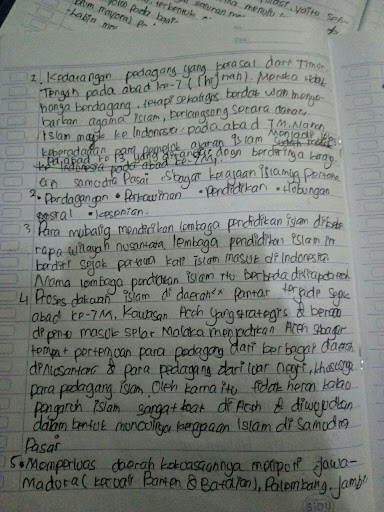 1. Kedatangan pedagang yang berasal dari Timur
Tengah pada abad ke-7 (1 hijriah). Mereka tidak
hanya berdagang, tetapi sekaligus berdakwah menye-
barkan agama Islam, berlangsung secara damai
Islam masuk ke Indonesia pada abad 7 M. Namun,
keberadaan para pemeluk ajaran Islam menjadi
pd abad ke 13 yang ditandai dngn berdirinya keraja
an samodra Pasai sbagai kerajaan islam yg pertama
2. • Perdagangan • Perkawinan • Pendidikan • Hubungan
sosial • kesenian.
3 Para mubalig mendirikan lembaga pendidikan islam di bebe
rapa wilayah nusantara, lembaga pendidikan islam ini
berdiri sejak pertama kali islam masuk di Indonesia
Nama lembaga pendidikan islam itu berbeda
4 Proses dakwah islam di daerah²x Pantai terjadi sejak
abad ke-7 M. Kawasan Aceh yang strategis & berada
di pintu masuk selat Malaka menjadikan Aceh sbagai
tempat pertemuan para pedagang dari berbagai daerah
di Nusantara & para pedagang dari luar negri, khususnya
para pedagang islam. Oleh karna itu tidak heran kalau
pengaruh islam sangat kuat di Aceh & diwujudkan
dalam bentuk munculnya kerajaan Islam di Samodra
Pasai
5 • Memperluas daerah kekuasaannya meliputi Jawa-
Madura (kecuali Banten & Batavia), Palembang, Jambi
SIDU